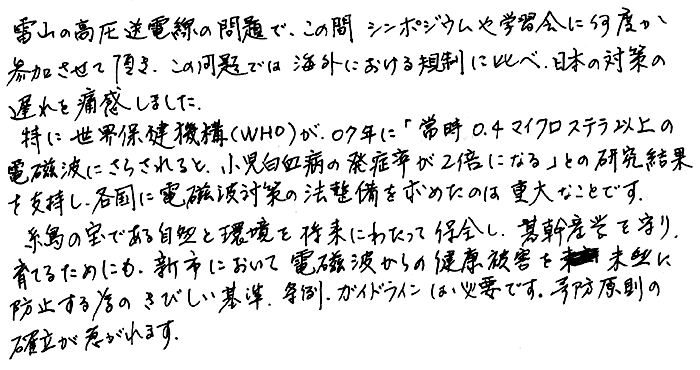 雷山の高圧送電線の問題で、この間 シンポジウムや学習会に何度か
参加させて頂き、この問題では 海外における規制に比べ、日本の対策の
遅れを痛感しました。
特に 世界保健機構(WHO)が、07年に「常時 0.4 マイクロステラ以上の
電磁波にさらされると、小児白血病の発症率が2倍になる」との研究結果
を支持し、各国に電磁波対策の法整備を求めたのは 重大なことです。
糸島の宝である自然と環境を 将来にわたって保全し、基幹産業を守り、
育てるためにも、新市において 電磁波からの健康被害を 未然に
防止する為の きびしい基準、条例、ガイドラインは必要です。予防原則の
確立が急がれます。